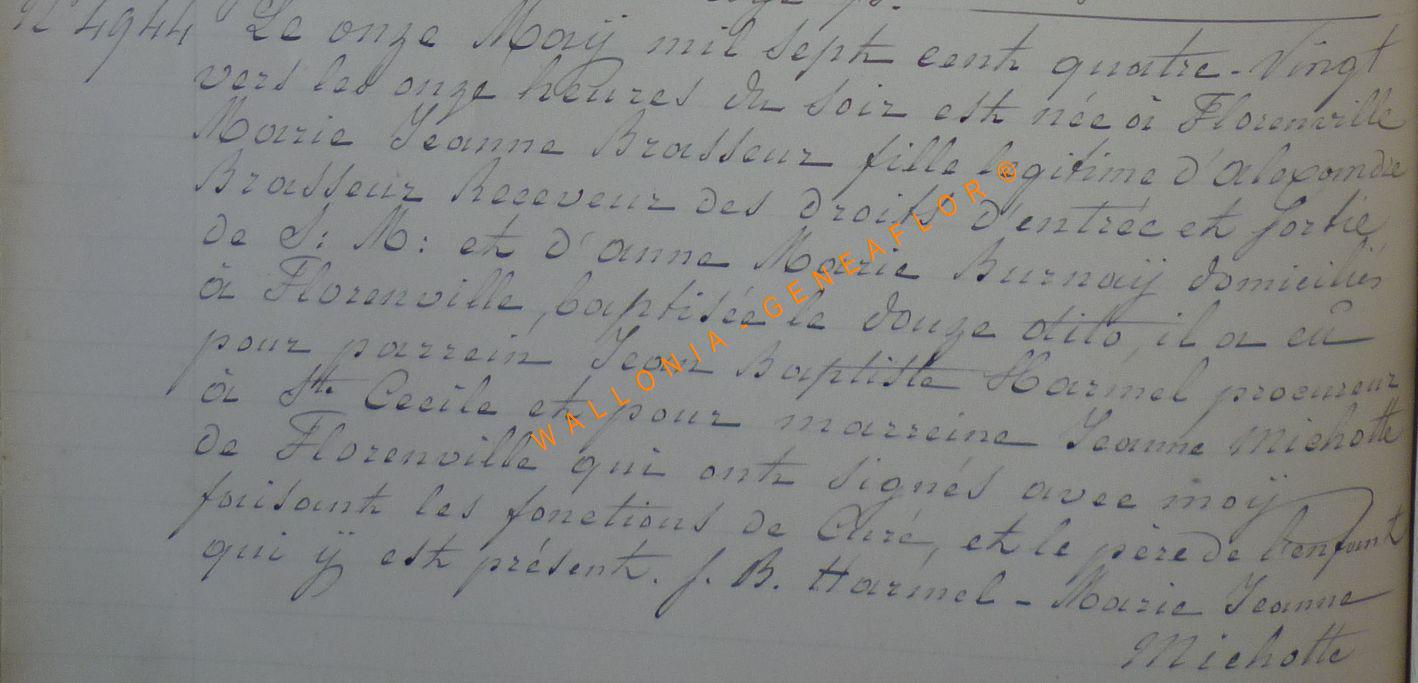 N° 4944 Le onze Maÿ mil sept cent quatre-Vingt
vers les onze heures du soir est née à Florenville
Marie Jeanne Brasseur fille legitime d'alexandre
Brasseur Receveur des droits d'entrée et sortie
de S: M: et d'anne Marie Burnaÿ domiciliés
à Florenville, baptisée le douze dito, il a eû
pour parrein Jean Baptiste Harmel procureur
à Ste Cecile et pour marreine Jeanne Michotte
de Florenville qui ont signés avec moÿ
faisant les fonctions de Curé, et le père de l'enfant
qui ÿ est présent. J. B. Harmel - Marie Jeanne
Michotte
WALLONIA - GENEAFLOR ®